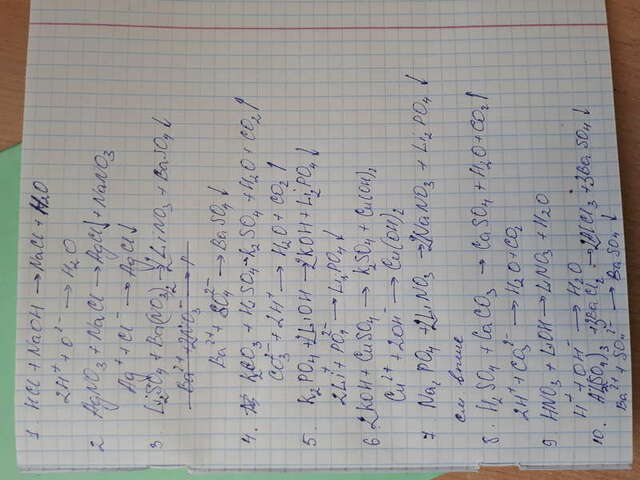 1 HCl + NaOH → NaCl + H2O
2H⁺ + O²⁻ → H2O
2 AgNO3 + NaCl → AgCl↓ + NaNO3
Ag⁺ + Cl⁻ → AgCl↓
3 Li2SO4 + Ba(NO3)2 → 2LiNO3 + BaSO4↓
Ba²⁺ + SO4²⁻ → BaSO4↓
4. K2CO3 + H2SO4 → K2SO4 + H2O + CO2↑
CO3²⁻ + 2H⁺ → H2O + CO2↑
5. K2PO4 + 2LiOH → 2KOH + Li2PO4↓
2Li⁺ + PO4²⁻ → Li2PO4↓
6. 2KOH + CuSO4 → K2SO4 + Cu(OH)2
Cu²⁺ + 2OH⁻ → Cu(OH)2
7 Na2PO4 + 2LiNO3 → 2NaNO3 + Li2PO4↓
см выше
8. H2SO4 + CaCO3 → CaSO4 + H2O + CO2↑
2H⁺ + CO3²⁻ → H2O + CO2
9 HNO3 + LiOH → LiNO3 + H2O
H⁺ + OH⁻ → H2O
10. Al2(SO4)3 + 3BaCl2 → 2AlCl3 + 3BaSO4↓
Ba²⁺ + SO4²⁻ → BaSO4↓